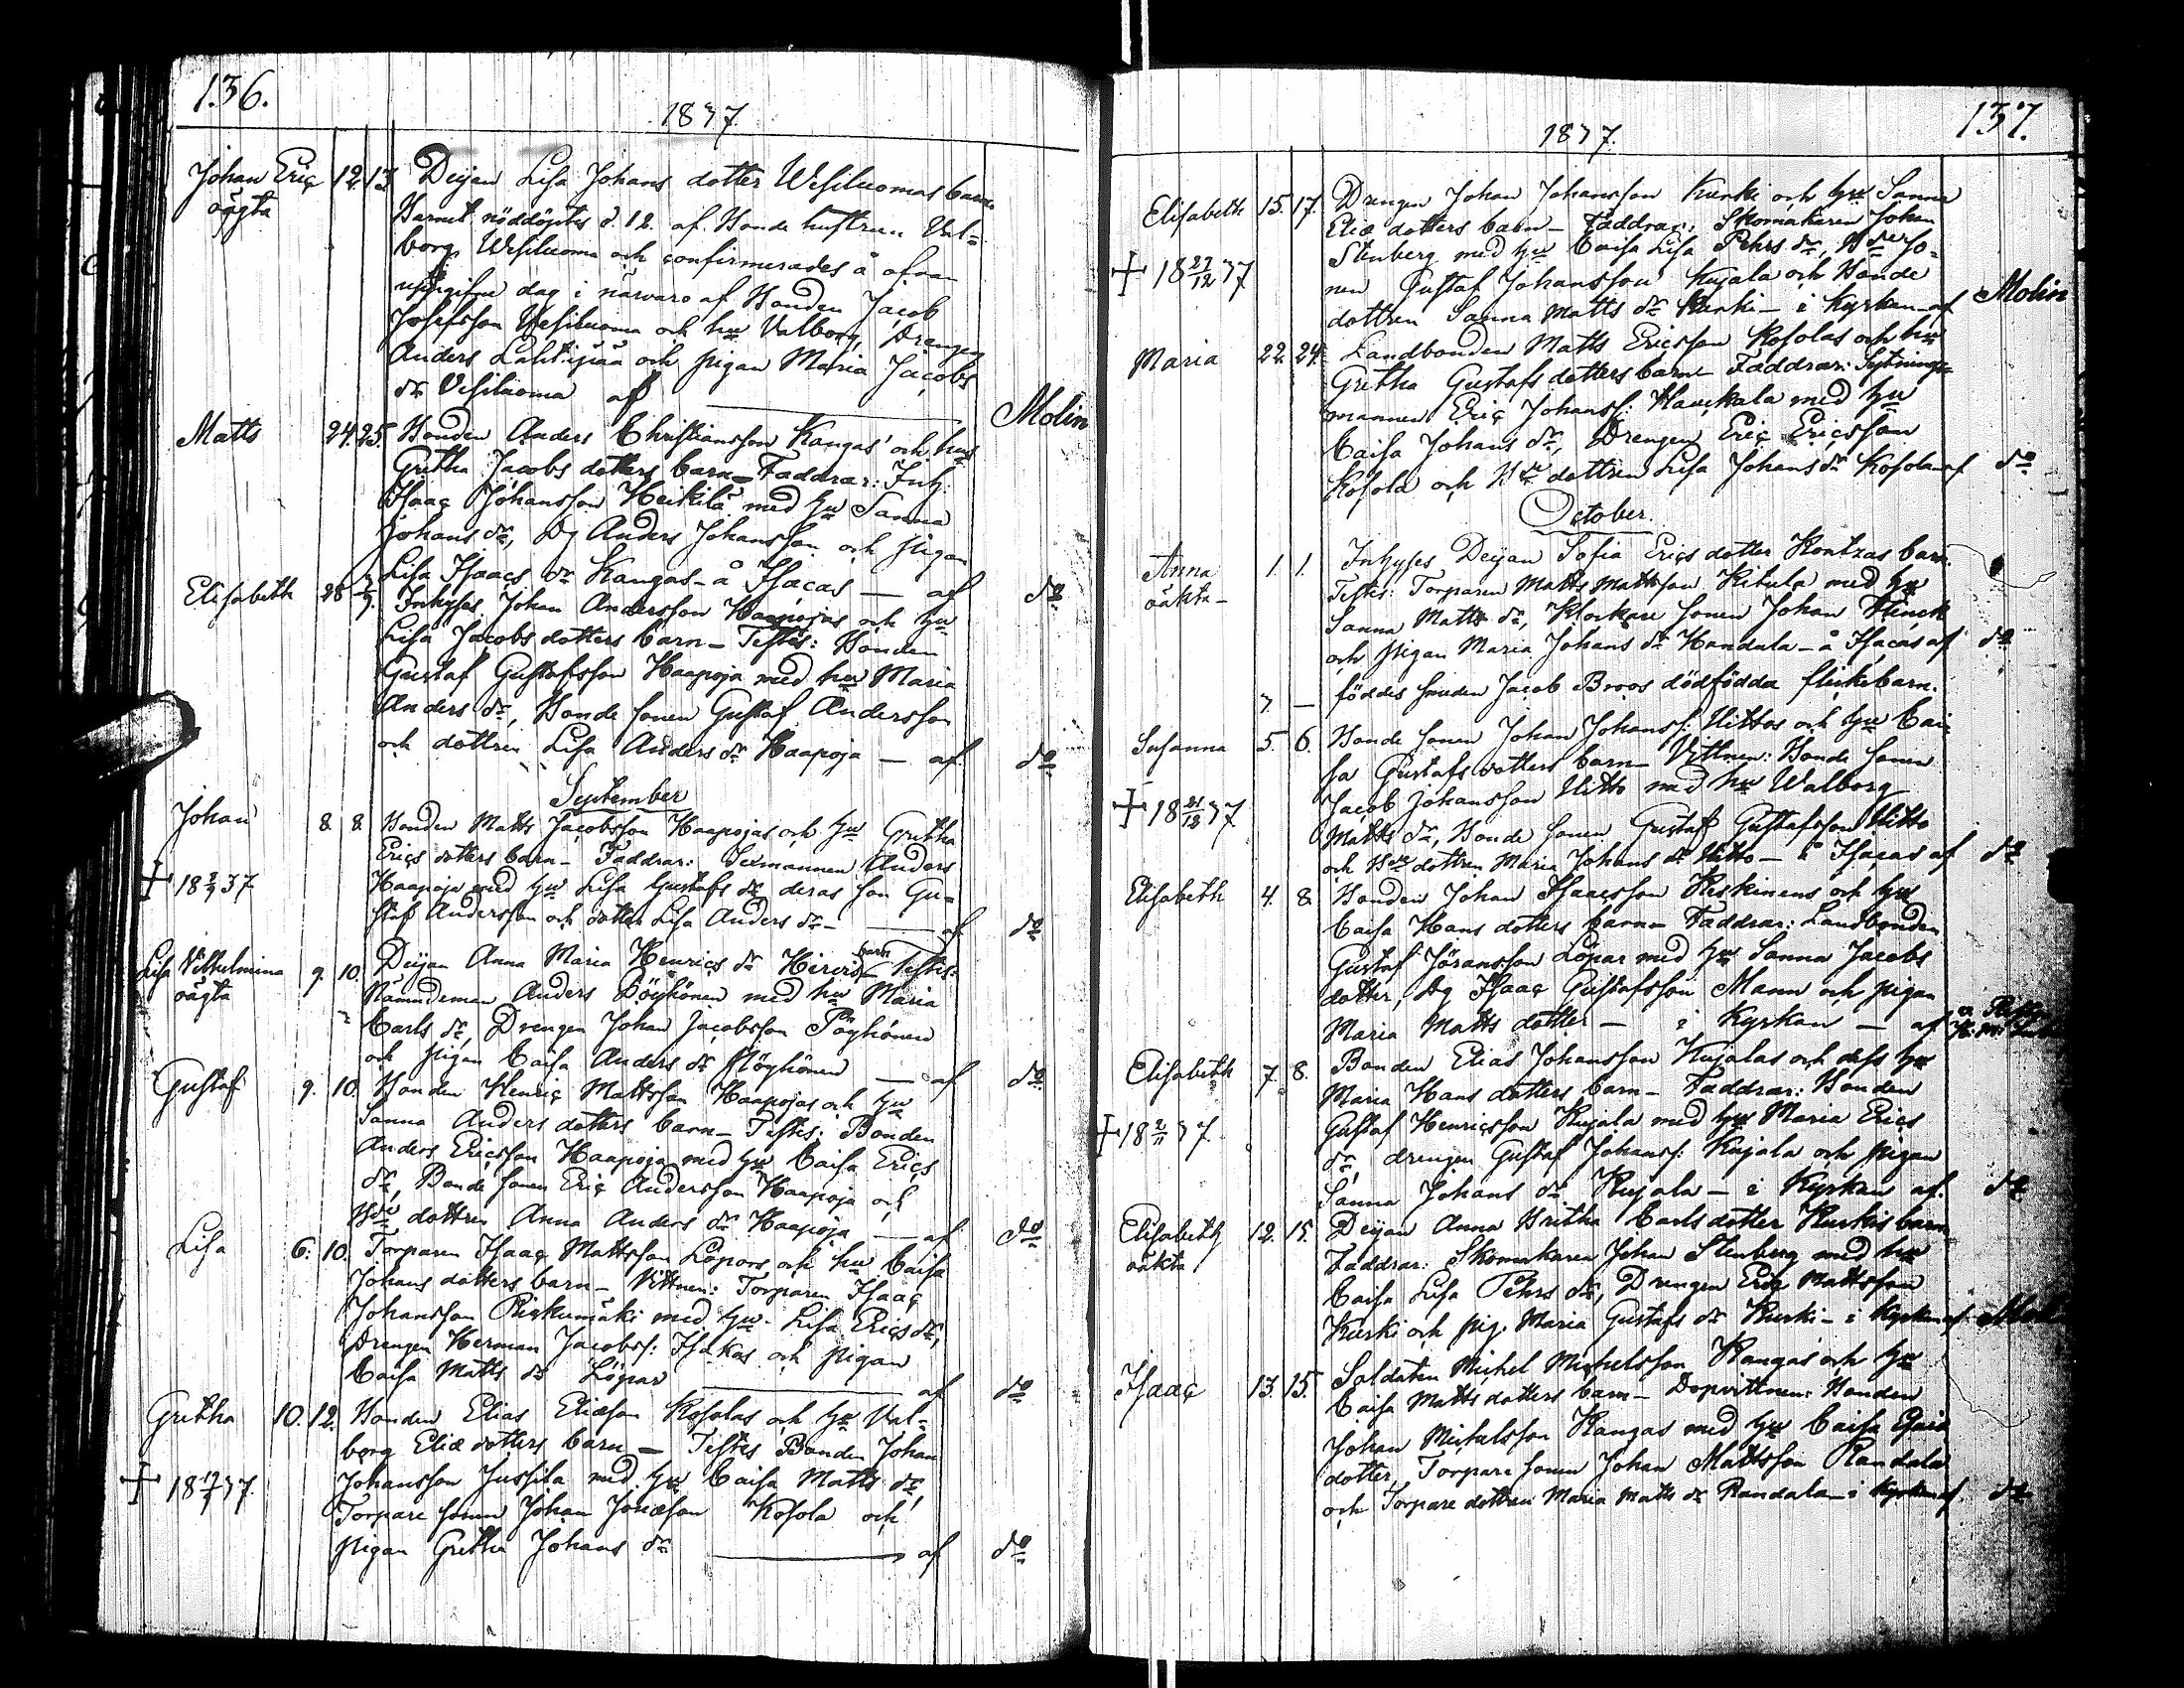 136.
1837
Johan Eric 12. 13. Deijan Lisa Johans dotter Wesiluomas barn
oägta Barnet nöddöptes d. 12. af Bonde hustrun Val=
borg Wesiluoma och confirmerades å ofvan
uppgifne dag i närvaro af Bonden Jacob
Josefsson Wesiluoma och hu Valborg, Drengen
Anders Lahtisjaa och pigan Maria Jacobs
dr Vesiluoma af Molin
Matts 24. 25. Bonden Anders Christiansson Kangas' och hus
Gretha Jacobs dotters barn – Faddrar: Inh:
Isaac Johansson Heikilä med hu Sanna
Johans dr, Dg Anders Johansson och pigan
Lisa Isaacs dr Kangas – å Isacas — af do
Elisabeth 28 Inhyses Johan Andersson Haapojas och hu
Lisa Jacobs dotters barn – Testes: Bonden
Gustaf Gustafsson Haapoja med hu Maria
Anders dr, Bonde sonen Gustaf Andersson
och dottren Lisa Anders dr Haapoja — af do
September
Johan 8. 8. Bonden Matts Jacobsson Haapojas och hu Gretha
Erics dotters barn – Faddrar: Sexmannen Anders
+ 18 37 Haapoja med hu Lisa Gustafs dr deras son Gu=
staf Andersson och dotter Lisa Anders dr – af do
Lisa Vilhelmina 9. 10. Deijan Anna Maria Henrics dr Hirvis barn – Testes:
oägta Nämndeman Anders Böyhönen med hu Maria
Carls dr, Drengen Johan Jacobsson Pöyhönen
och pigan Caisa Anders dr Pöyhönen — af do
Gustaf 9. 10. Bonden Henric Mattsson Haapojas och hu
Sanna Anders dotters barn – Testes: Bonden
Anders Ericsson Haapoja med hu Caisa Erics
dr, Bonde sonen Eric Andersson Haapoja och
Bde dottren Anna Anders dr Haapoja — af do
Lisa 6. 10. Torparen Isaac Mattsson Löpars och hu Caisa
Johans dotters barn – Vittnen: Torparen Isaac
Johansson Riskumäki med hu Lisa Erics dr,
Drengen Herman Jacobss: Isakas och pigan
Caisa Matts dr Löpar — af do
Gretha 10. 12. Bonden Elias Eliæson Kosolas och hu Val=
borg Eliæ dotters barn – Testes Bonden Johan
+ 18 37. Johansson Jussila med hu Caisa Matts dr,
Torpare sonen Johan Jonæson Kosola och
pigan Gretha Johans dr — af do
137.
1837.
Elisabeth 15. 17. Drengen Johan Johansson Kurki och hu Sanna
Eliæ dotters barn – Faddrar: Skomakaren Johan
+ 18 27/12 37 Stenberg med hu Caisa Lisa Pehrs dr, Bde so=
nen Gustaf Johansson Kujala och Bonde
dottren Sanna Matts dr Kurki – i Kyrkan af Molin
Maria 22. 24. Landbonden Matts Ericsson Kosolas och hus
Gretha Gustafs dotters barn – Faddrar: Sytnings=
mannen Eric Johanss: Hauckala med hu
Caisa Johans dr, Drengen Eric Ericsson
Kosola och Bde dottren Lisa Johans dr Kosola af do
October.
Anna 1. 1. Inhyses Deijan Sofia Erics dotter Kontzas barn.
oäkta – Testes: Torparen Matts Mattsson Kitula med hu
Sanna Matts dr, Klockare sonen Johan Flinck
och pigan Maria Johans dr Handala – å Isacas af do
7. — föddes smeden Jacob Broos dödfödda flickebarn.
Susanna 5. 6. Bonde sonen Johan Johanss: Hittos och hu Cai=
sa Gustafs dotters barn – Vittnen: Bonde sonen
+ 18 21/12 37 Jacob Johansson Hitto med hu Walborg
Matts dr, Bonde sonen Gustaf Gustafsson Hitto
och Bde dottren Maria Johans dr Hitto – å Isacas af do
Elisabeth 4. 8. Bonden Johan Isaacsson Keskinens och hu
Caisa Hans dotters barn – Faddrar: Landbonden
Gustaf Jöransson Löpar med hu Sanna Jacobs
dotter, Dg Isaac Gustafsson Mann och pigan
Maria Matts dotter – i Kyrkan — af
Elisabeth 7. 8. Bonden Elias Johansson Kujalas och dess hu
Maria Hans dotters barn – Faddrar: Bonden
+ 18 2/11 37 Gustaf Henricsson Kujala med hu Maria Erics
dr, drengen Gustaf Johanss: Kujala och pigan
Sanna Johans dr Kujala – i Kyrkan af. do
Elisabeth 12. 15. Deijan Anna Britha Carls dotter Kurkis barn
oäkta Faddrar: Skomakaren Johan Stenberg med hu
Caisa Lisa Pehrs dr, Drengen Eric Mattsson
Kurki och pig. Maria Gustafs dr Kurki – i Kyrkan af Mol
Isaac 13. 15. Soldaten Michel Michelsson Kangas och hu
Caisa Matts dotters barn – Dopvittnen: Bonden
Johan Michelsson Kangas med hu Caisa Esaia
dotter, Torpare sonen Johan Mattsson Randala
och Torpare dottren Maria Matts dr Randala – i Kyrkan af. do